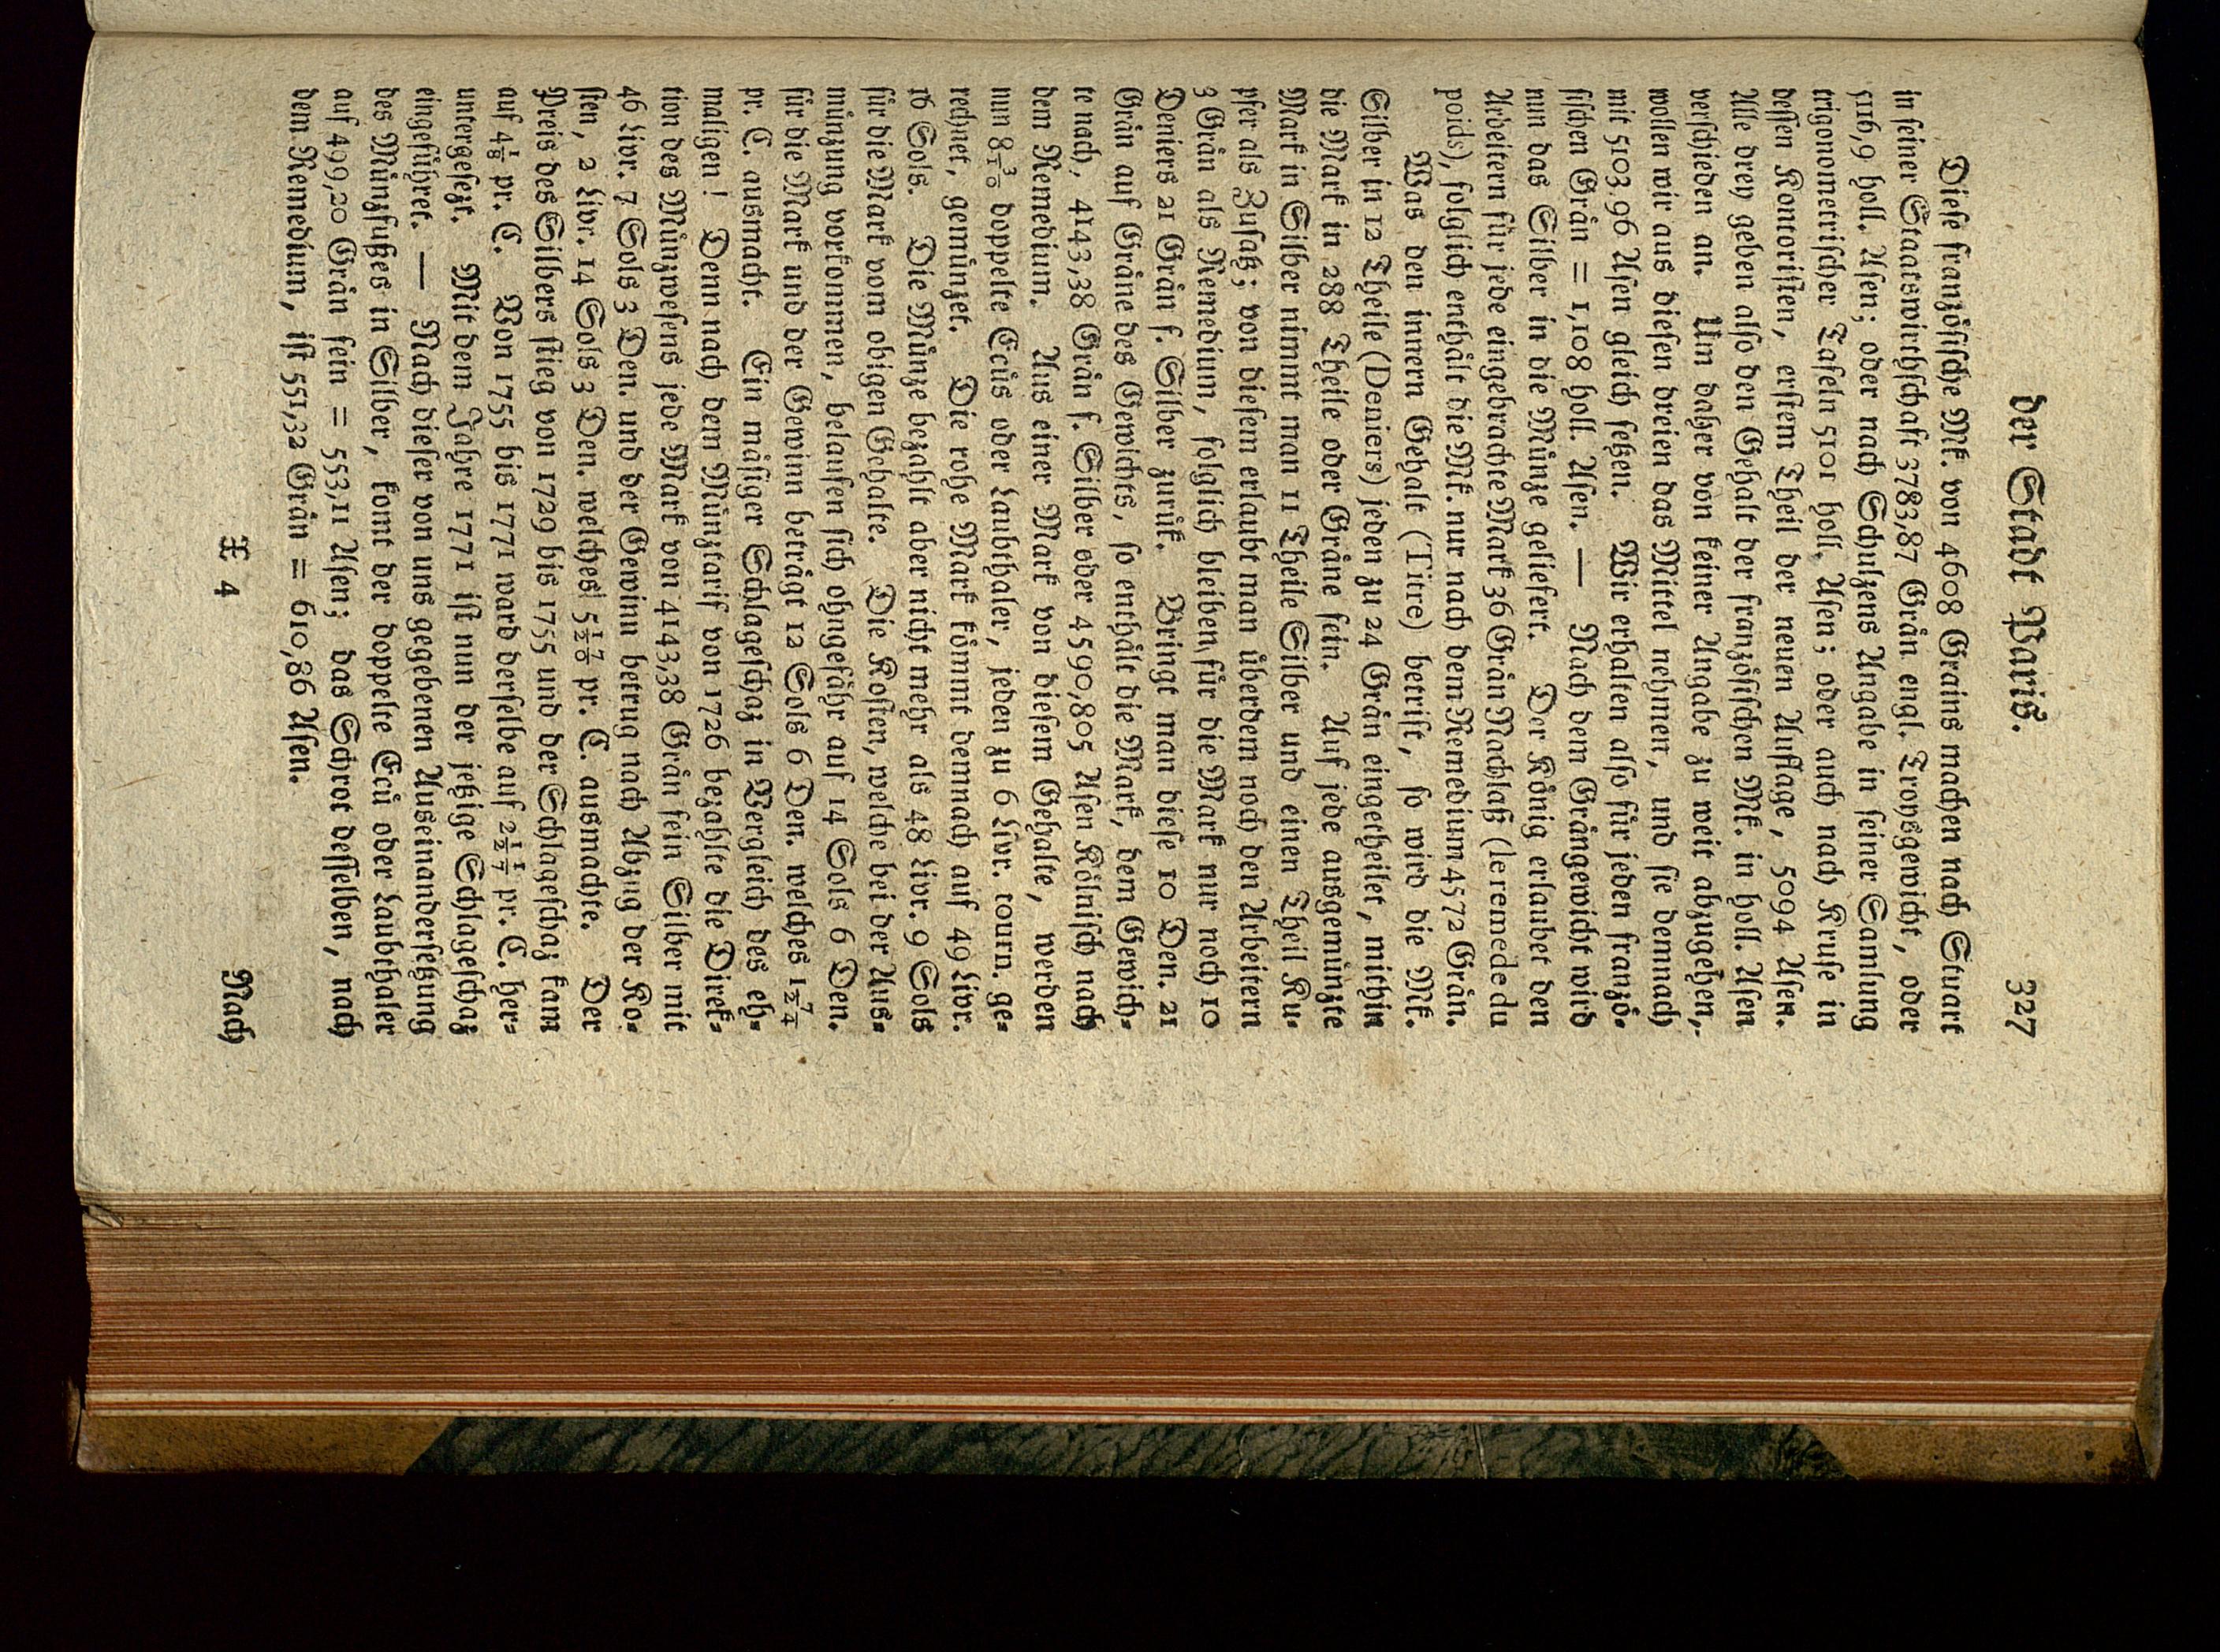 der Stadt Paris. 327
Diese französische Mk. von 4608 Grains machen nach Stuart
in seiner Staatswirthschaft 3783,87 Grän engl. Troysgewicht, oder
5116,9 holl. Asen; oder nach Schulzens Angabe in seiner Samlung
trigonometrischer Tafeln 5101 holl. Asen; oder auch nach Kruse in
dessen Kontoristen, erstem Theil der neuen Auflage, 5094 Asen.
Alle drey geben also den Gehalt der französischen Mk. in holl. Asen
verschieden an. Um daher von keiner Angabe zu weit abzugehen,
wollen wir aus diesen dreien das Mittel nehmen, und sie demnach
mit 5103,96 Asen gleich setzen. Wir erhalten also für jeden franzö-
sischen Grän = 1,108 holl. Asen. — Nach dem Grängewicht wird
nun das Silber in die Münze geliefert. Der König erlaubet den
Arbeitern für jede eingebrachte Mark 36 Grän Nachlaß (le remede du
poids), folglich enthält die Mk. nur nach dem Remedium 4572 Grän.
Was den innern Gehalt (Titre) betrift, so wird die Mk.
Silber in 12 Theile (Deniers) jeden zu 24 Grän eingetheilet, mithin
die Mark in 288 Theile oder Gräne fein. Auf jede ausgemünzte
Mark in Silber nimmt man 11 Theile Silber und einen Theil Ku-
pfer als Zusatz; von diesem erlaubt man überdem noch den Arbeitern
3 Grän als Remedium, folglich bleiben für die Mark nur noch 10
Deniers 21 Grän f. Silber zurük. Bringt man diese 10 Den. 21
Grän auf Gräne des Gewichts, so enthält die Mark, dem Gewich-
te nach, 4143,38 Grän f. Silber oder 4590,805 Asen Kölnisch nach
dem Remedium. Aus einer Mark von diesem Gehalte, werden
nun 8 3/10 doppelte Ecüs oder Laubthaler, jeden zu 6 Livr. tourn. ge-
rechnet, gemünzet. Die rohe Mark kömmt demnach auf 49 Livr.
16 Sols. Die Münze bezahlt aber nicht mehr als 48 Livr. 9 Sols
für die Mark vom obigen Gehalte. Die Kosten, welche bei der Aus-
münzung vorkommen, belaufen sich ohngefähr auf 14 Sols 6 Den.
für die Mark und der Gewinn beträgt 12 Sols 6 Den. welches 1 7/24
pr. C. ausmacht. Ein mäsiger Schlageschaz in Vergleich des eh-
maligen! Denn nach dem Münztarif von 1726 bezahlte die Direk-
tion des Münzwesens jede Mark von 4143,38 Grän fein Silber mit
46 Livr. 7 Sols 3 Den. und der Gewinn betrug nach Abzug der Ko-
sten, 2 Livr. 14 Sols 3 Den. welches 5 17/20 pr. C. ausmachte. Der
Preis des Silbers stieg von 1729 bis 1755 und der Schlageschaz kam
auf 4 1/8 pr. C. Von 1755 bis 1771 ward derselbe auf 2 11/27 pr. C. her-
untergesezt. Mit dem Jahre 1771 ist nun der jetzige Schlageschaz
eingeführet. — Nach dieser von uns gegebenen Auseinandersetzung
des Münzfußes in Silber, komt der doppelte Ecü oder Laubthaler
auf 499,20 Grän fein = 553,11 Asen; das Schrot desselben, nach
dem Remedium, ist 551,32 Grän = 610,86 Asen.
X 4 Nach